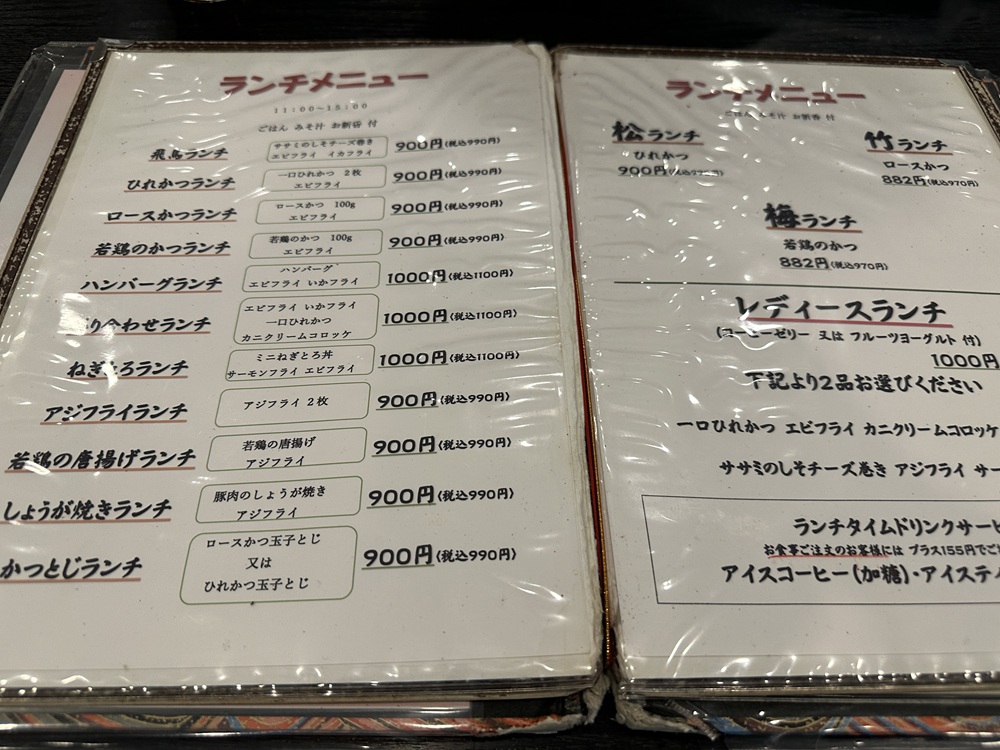 ランチメニュー
11:00~15:00
ごはん みそ汁 お新香 付
飛鳥ランチ ササミのしそチーズ巻き 900円(税込990円)
エビフライ イカフライ
ひれかつランチ 一口ひれかつ 2枚 900円(税込990円)
エビフライ
ロースかつランチ ロースかつ 100g 900円(税込990円)
エビフライ
若鶏のかつランチ 若鶏のかつ 100g 900円(税込990円)
エビフライ
ハンバーグランチ ハンバーグ 1000円(税込1100円)
エビフライ いかフライ
り合わせランチ エビフライ いかフライ 1000円(税込1100円)
一口ひれかつ
カニクリームコロッケ
ねぎとろランチ ミニねぎとろ丼 1000円(税込1100円)
サーモンフライ エビフライ
アジフライランチ アジフライ 2枚 900円(税込990円)
若鶏の唐揚げランチ 若鶏の唐揚げ 900円(税込990円)
アジフライ
しょうが焼きランチ 豚肉のしょうが焼き 900円(税込990円)
アジフライ
かつとじランチ ロースかつ玉子とじ 900円(税込990円)
又は
ひれかつ玉子とじ
ランチメニュー
ごはん みそ汁 お新香 付
松ランチ
ひれかつ
900円(税込990円)
竹ランチ
ロースかつ
882円(税込970円)
梅ランチ
若鶏のかつ
882円(税込970円)
レディースランチ
(コーヒーゼリー 又は フルーツヨーグルト 付)
1000円
下記より2品お選びください
一口ひれかつ エビフライ カニクリームコロッケ
ササミのしそチーズ巻き アジフライ サー
ランチタイムドリンクサービ
お食事ご注文のお客様には プラス155円でご
アイスコーヒー(加糖)・アイスティ